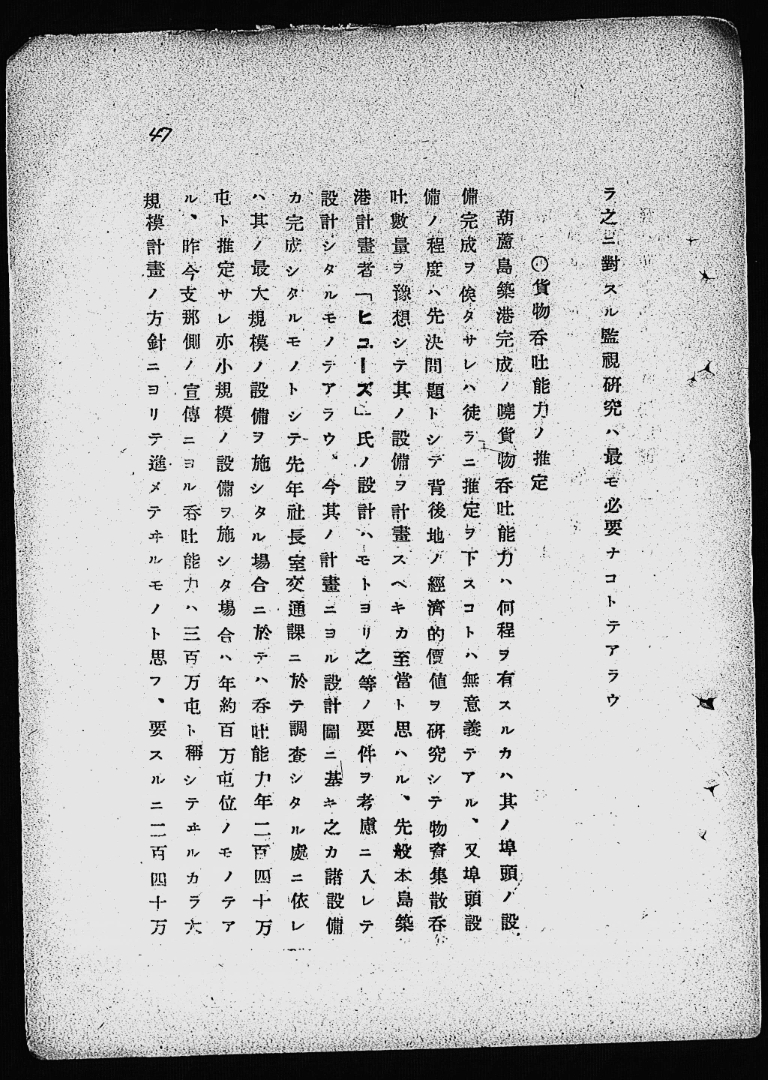 47
ラ之ニ對スル監視研究ハ最モ必要ナコトテアラウ
〇貨物呑吐能力ノ推定
葫蘆島築港完成ノ曉貨物呑吐能力ハ何程ヲ有スルカハ其ノ埠頭ノ設
備完成ヲ俟タサレハ徒ラニ推定ヲ下スコトハ無意義テアル、又埠頭設
備ノ程度ハ先決問題トシテ背後地ノ經濟的價値ヲ研究シテ物資集散呑
吐數量ヲ豫想シテ其ノ設備ヲ計畫スヘキカ至當ト思ハル、先般本島築
港計畫者「ヒユーズ」氏ノ設計ハモトヨリ之等ノ要件ヲ考慮ニ入レテ
設計シタルモノテアラウ、今其ノ計畫ニヨル設計圖ニ基キ之カ諸設備
カ完成シタルモノトシテ先年社長室交通課ニ於テ調査シタル處ニ依レ
ハ其ノ最大規模ノ設備ヲ施シタル場合ニ於テハ呑吐能力年二百四十万
屯ト推定サレ亦小規模ノ設備ヲ施シタ場合ハ年約百万屯位ノモノテア
ル、昨今支那側ノ宣傳ニヨル呑吐能力ハ三百万屯ト稱シテヰルカラ大
規模計畫ノ方針ニヨリテ進メテヰルモノト思フ、要スルニ二百四十万